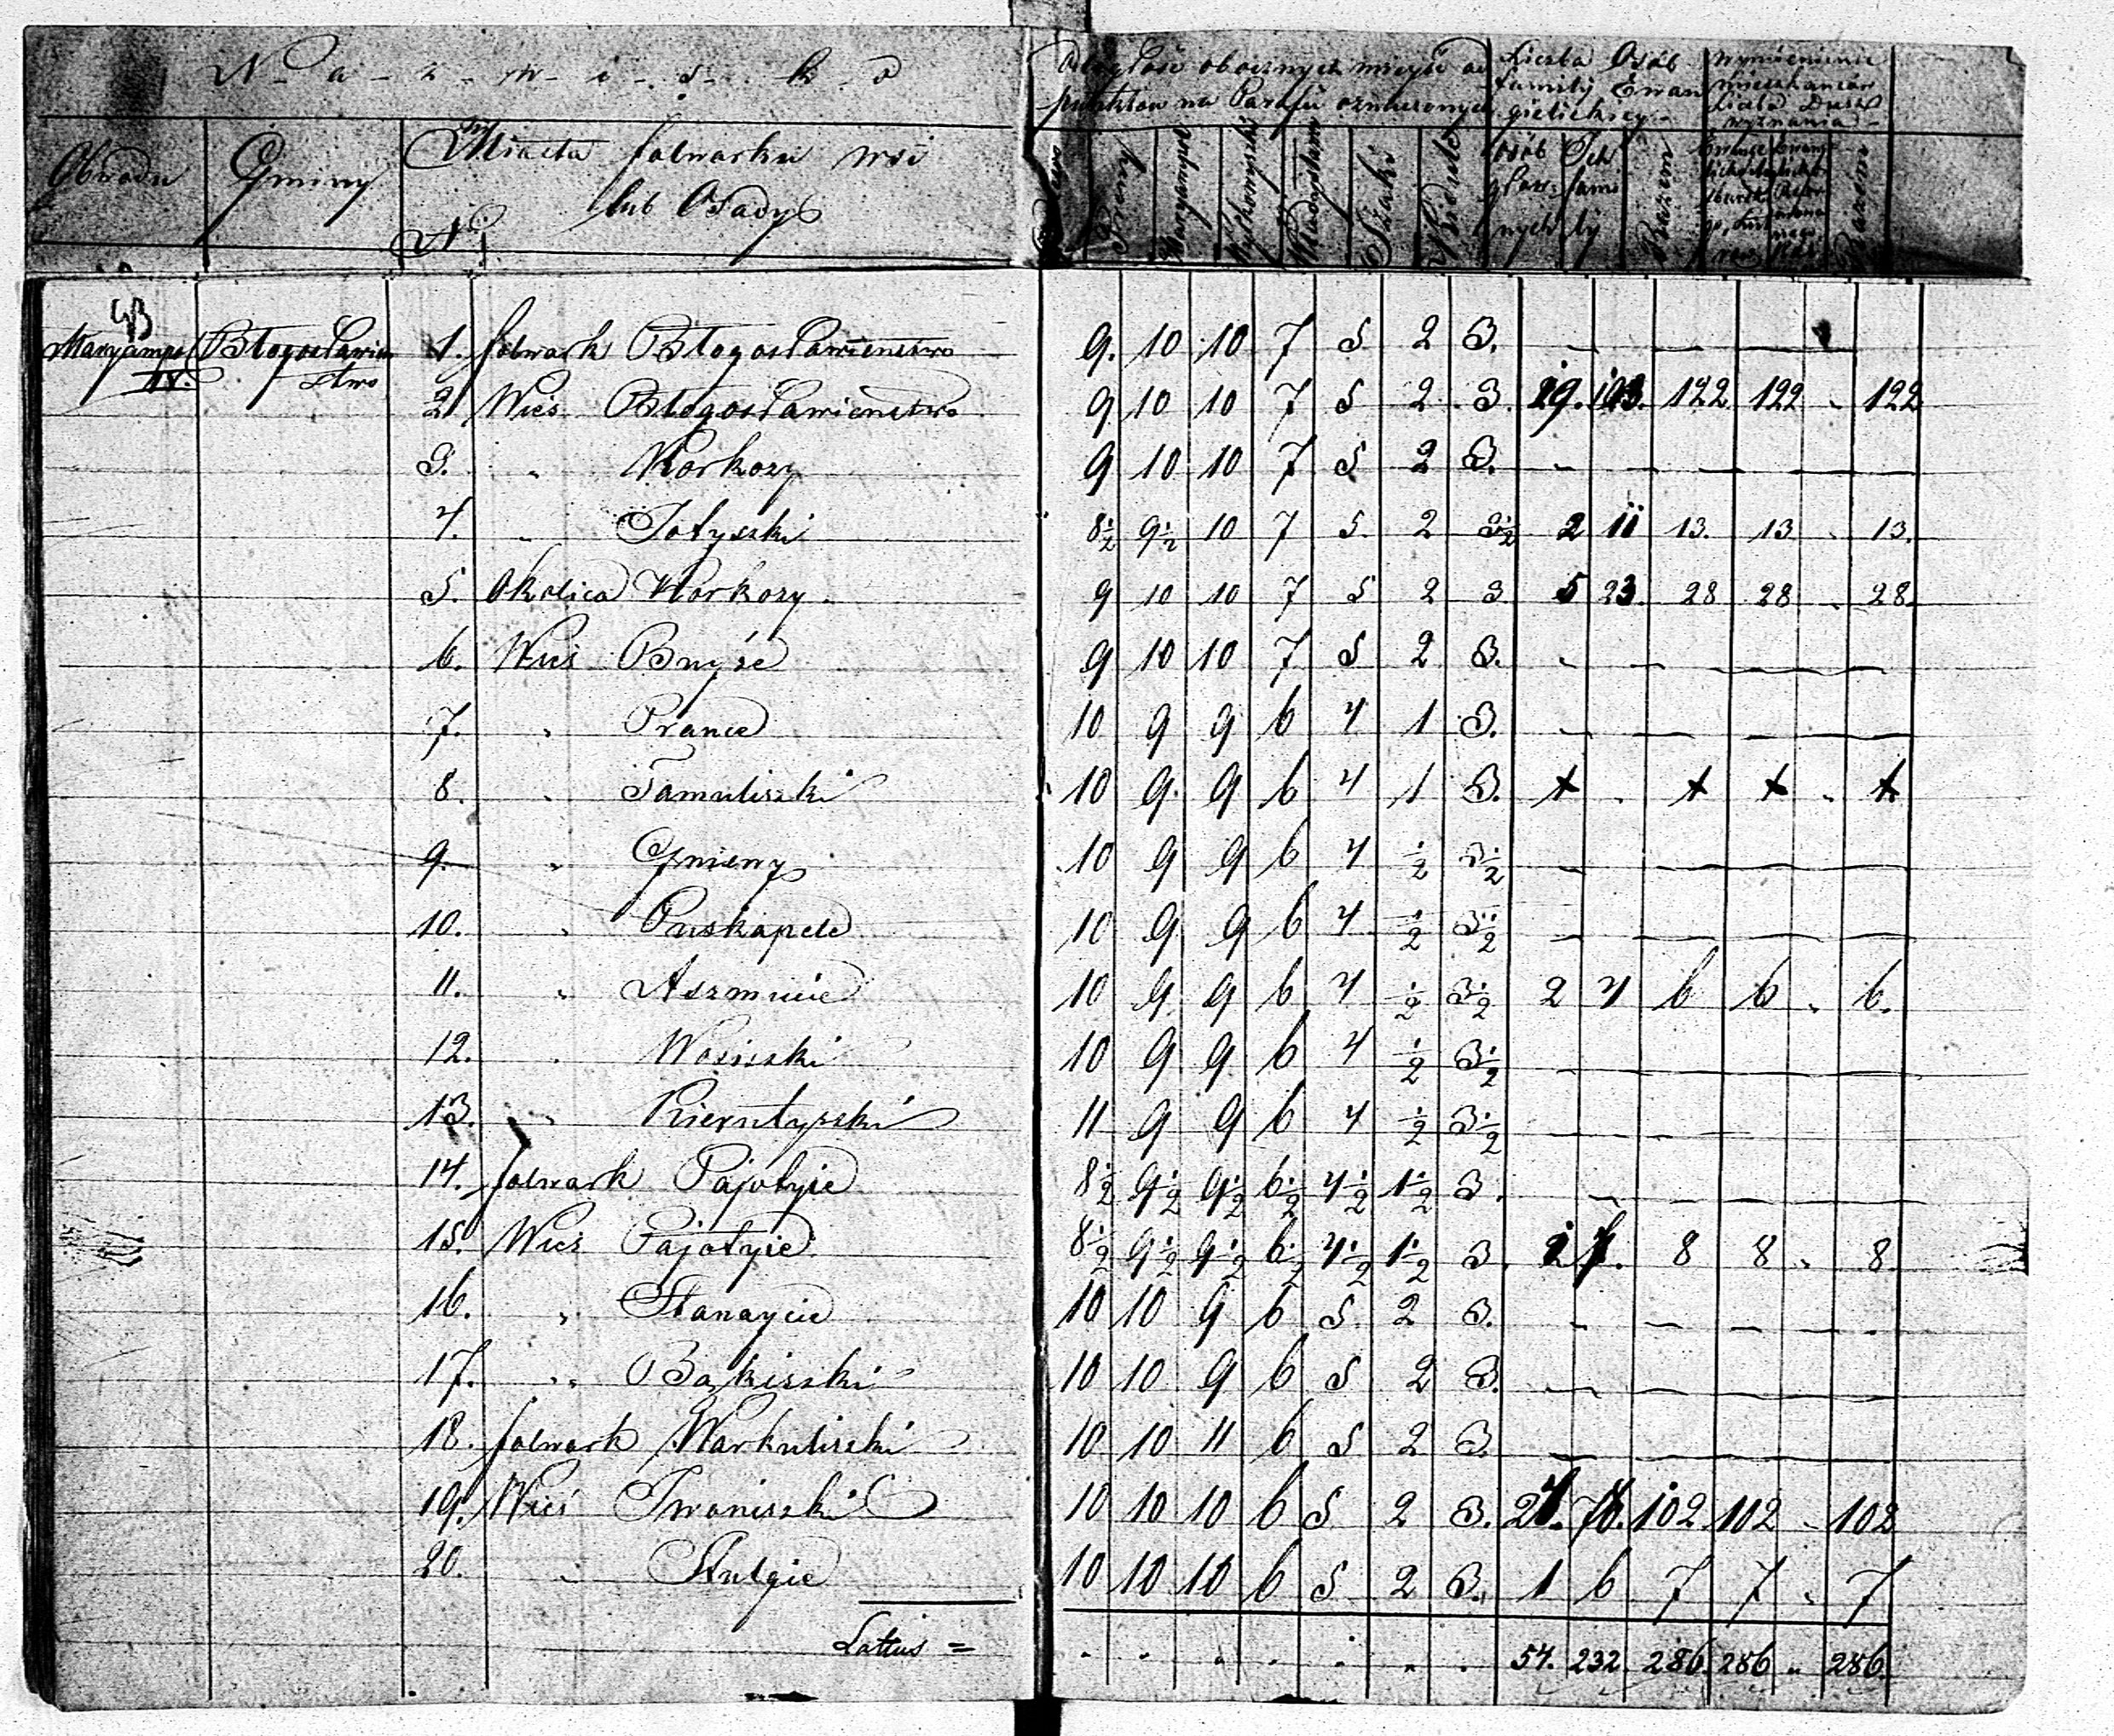 N a z w i s k o
Odległość obocznych mieysc od
punktów na Parafii oznaczonych
Liczba Osób
familij Ewan
gielickiey
wymienienie
Mieszkanców
liczba Dusz
wyznania
Obwodu
Gminy
Miasta folwarku wsi
lub Osady
N
Preny
Maryampol
Wyłkowyszki
Władysławów
Szaki
Osób
głow
nych
Ich
fami
ly
Razem
Razem
43
Maryampol Błogosławień 1. folwark Błogosławieństwo 9. 10 10 7 5 2 3. - - - -
IV. stwo
2. Wieś Błogosławieństwo 9 10 10 7 5 2. 3. 19. 103. 122 122 - 122
3. " Korkozy 9 10 10 7 5 2 3. - - - -
4. " Jotyszki 8½ 9½ 10 7 5. 2 3½ 2 11 13. 13 - 13.
5. Okolica Korkozy. 9 10 10 7 5 2 3 5 23. 28 28 - 28.
6. Wieś Bnyże 9 10 10 7 5 2 3. - - - -
7. " Prance 10 9 9 6 4 1 3. - - - -
8. " Tamuliszki 10 9. 9 6 4 1 3. 1 . 1 1 - 1.
9. " Gmieny 10 9 9 6 4 ½ 3½ - - - -
10. " Puskapele 10 9 9 6 4 ½ 3½ - - - -
11. " Aszmucie 10 9 9 6 4 ½ 3½ 2 4 6 6 - 6.
12. " Wosiszki 10 9 9 6 4 ½ 3½ - - - -
13. " Kierutyszki 11 9 9 6 4 ½ 3½ - - - -
14. folwark Pajotyie 8½ 9½ 9½ 6½ 4½ 1½ 3. - - - -
15. Wieś Pajotyie 8½ 9½ 9½ 6½ 4½ 1½ 3. 1 7. 8 8 - 8
16. " Stanaycie 10 10 9 6 5. 2 3. - - - -
17. " Bakiszki 10 10 9 6 5 2 3. - - - -
18. folwark Warkuliszki 10 10 11 6 5 2 3. - - - -
19. Wieś Iwaniszki 10 10 10 6 5 2 3. 24. 78. 102 102 - 102
20. " Stulgie 10 10 10 6 5 2 3. 1 6 7 7 - 7
Lattus = 54. 232. 286. 286 " 286.